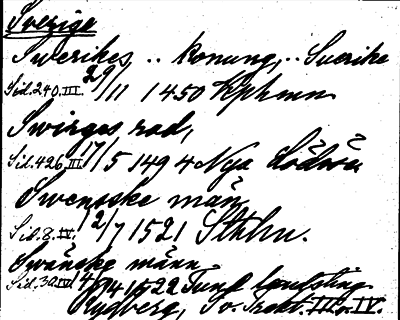 Sverige
Swerikes, .. konung, .. Suerike
Sid. 240. III. 29/11 1450 Kphmn
Swirges rad,
Sid. 426. III. 17/5 1494 Nya Lödöse
Swensske män,
Sid. 8. IV. 12/7 1521 Sthlm.
Swänske männ
Sid. 30 IV. 14/9 1522 Tuna landsting
Rydberg, Sv. Trakt. III o. IV.